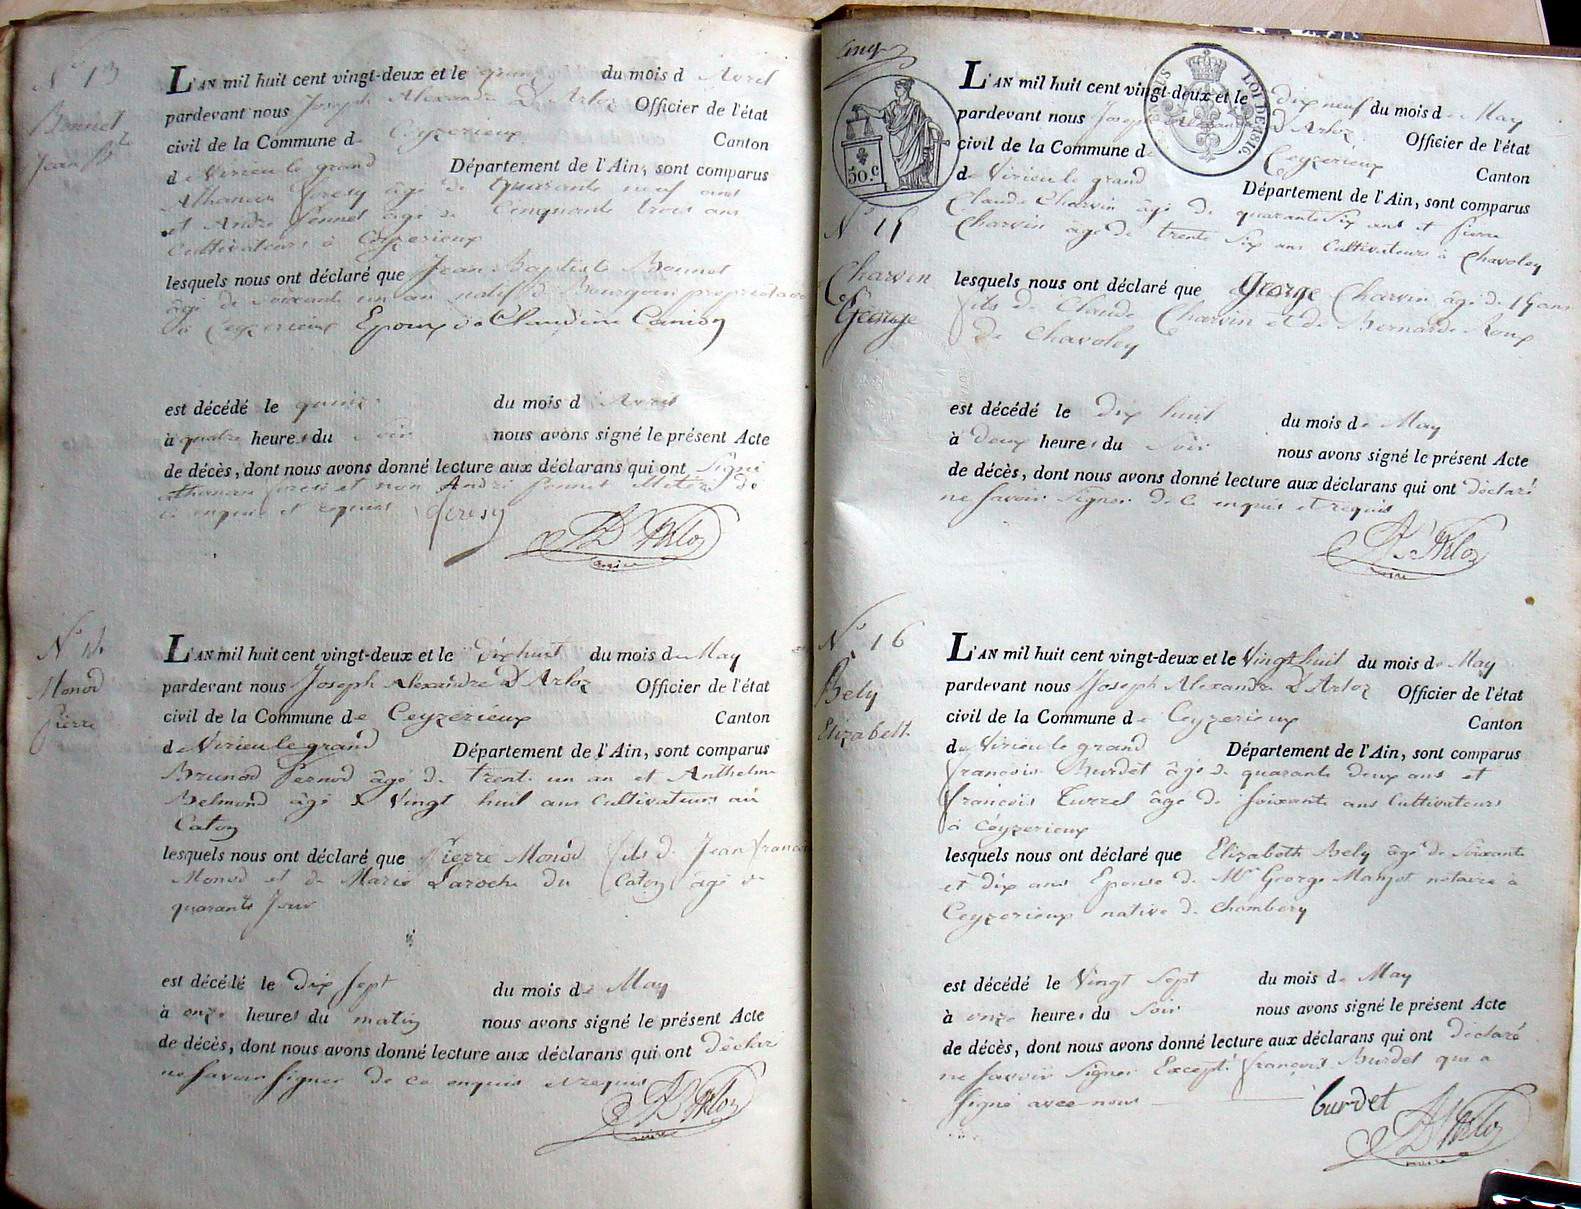 N° 13
Bonnet
Jean Bte
L'AN mil huit cent vingt-deux et le quinze du mois d'Avril
pardevant nous Joseph Alexandre D'Arloz Officier de l'état
civil de la Commune de Ceyzerieux Canton
de Virieu le grand Département de l'Ain, sont comparus
âgé de quarante neuf ans
et André âgé de Cinquante trois ans
Cultivateurs à Ceyzerieux
lesquels nous ont déclaré que Jean Baptiste Bonnet
âgé de soixante un an natif de Bourgoin propriétaire
à Ceyzerieux Epoux de Claudine
est décédé le quinze du mois d'Avril
à quatre heures du soir nous avons signé le présent Acte
de décès, dont nous avons donné lecture aux déclarans qui ont signé
et non André de
ce enquis et requis
D'Arloz
maire
N° 14
Monod
Pierre
L'AN mil huit cent vingt-deux et le dix huit du mois de May
pardevant nous Joseph Alexandre D'Arloz Officier de l'état
civil de la Commune de Ceyzerieux Canton
de Virieu le grand Département de l'Ain, sont comparus
Brunod Pernod âgé de trente un an et Anthelme
Belmond âgé de Vingt huit ans Cultivateurs au
Caton
lesquels nous ont déclaré que Pierre Monod fils de Jean françois
Monod et de Marie Laroche du Caton âgé de
quarante Jour
est décédé le dix sept du mois de May
à onze heures du matin nous avons signé le présent Acte
de décès, dont nous avons donné lecture aux déclarans qui ont déclaré
ne savoir signer de ce enquis et requis
D'Arloz
maire
Cinq
50.c
LOI DE 1816.
N° 15
Charvin
George
L'AN mil huit cent vingt-deux et le dix neuf du mois de May
pardevant nous Joseph Alexandre D'Arloz Officier de l'état
civil de la Commune de Ceyzerieux Canton
de Virieu le grand Département de l'Ain, sont comparus
Claude Charvin âgé de quarante six ans et Pierre
Charvin âgé de trente six ans Cultivateurs à Chavoley
lesquels nous ont déclaré que George Charvin âgé de 15 ans
fils de Claude Charvin et de Bernarde Roux
de Chavoley
est décédé le dix huit du mois de May
à deux heures du soir nous avons signé le présent Acte
de décès, dont nous avons donné lecture aux déclarans qui ont déclaré
ne savoir signer de ce enquis et requis
D'Arloz
maire
N° 16
Bely
Elizabeth
L'AN mil huit cent vingt-deux et le Vingt huit du mois de May
pardevant nous Joseph Alexandre D'Arloz Officier de l'état
civil de la Commune de Ceyzerieux Canton
de Virieu le grand Département de l'Ain, sont comparus
françois Burdet âgé de quarante deux ans et
françois Turrel âgé de soixante ans Cultivateurs
à Ceyzerieux
lesquels nous ont déclaré que Elizabeth Bely âgé de soixante
et dix ans Epouse de Mr George Margot notaire à
Ceyzerieux native de Chambery
est décédé le Vingt sept du mois de May
à onze heures du soir nous avons signé le présent Acte
de décès, dont nous avons donné lecture aux déclarans qui ont déclaré
ne savoir signer Excepté françois Burdet qui a
signé avec nous
burdet
D'Arloz
maire